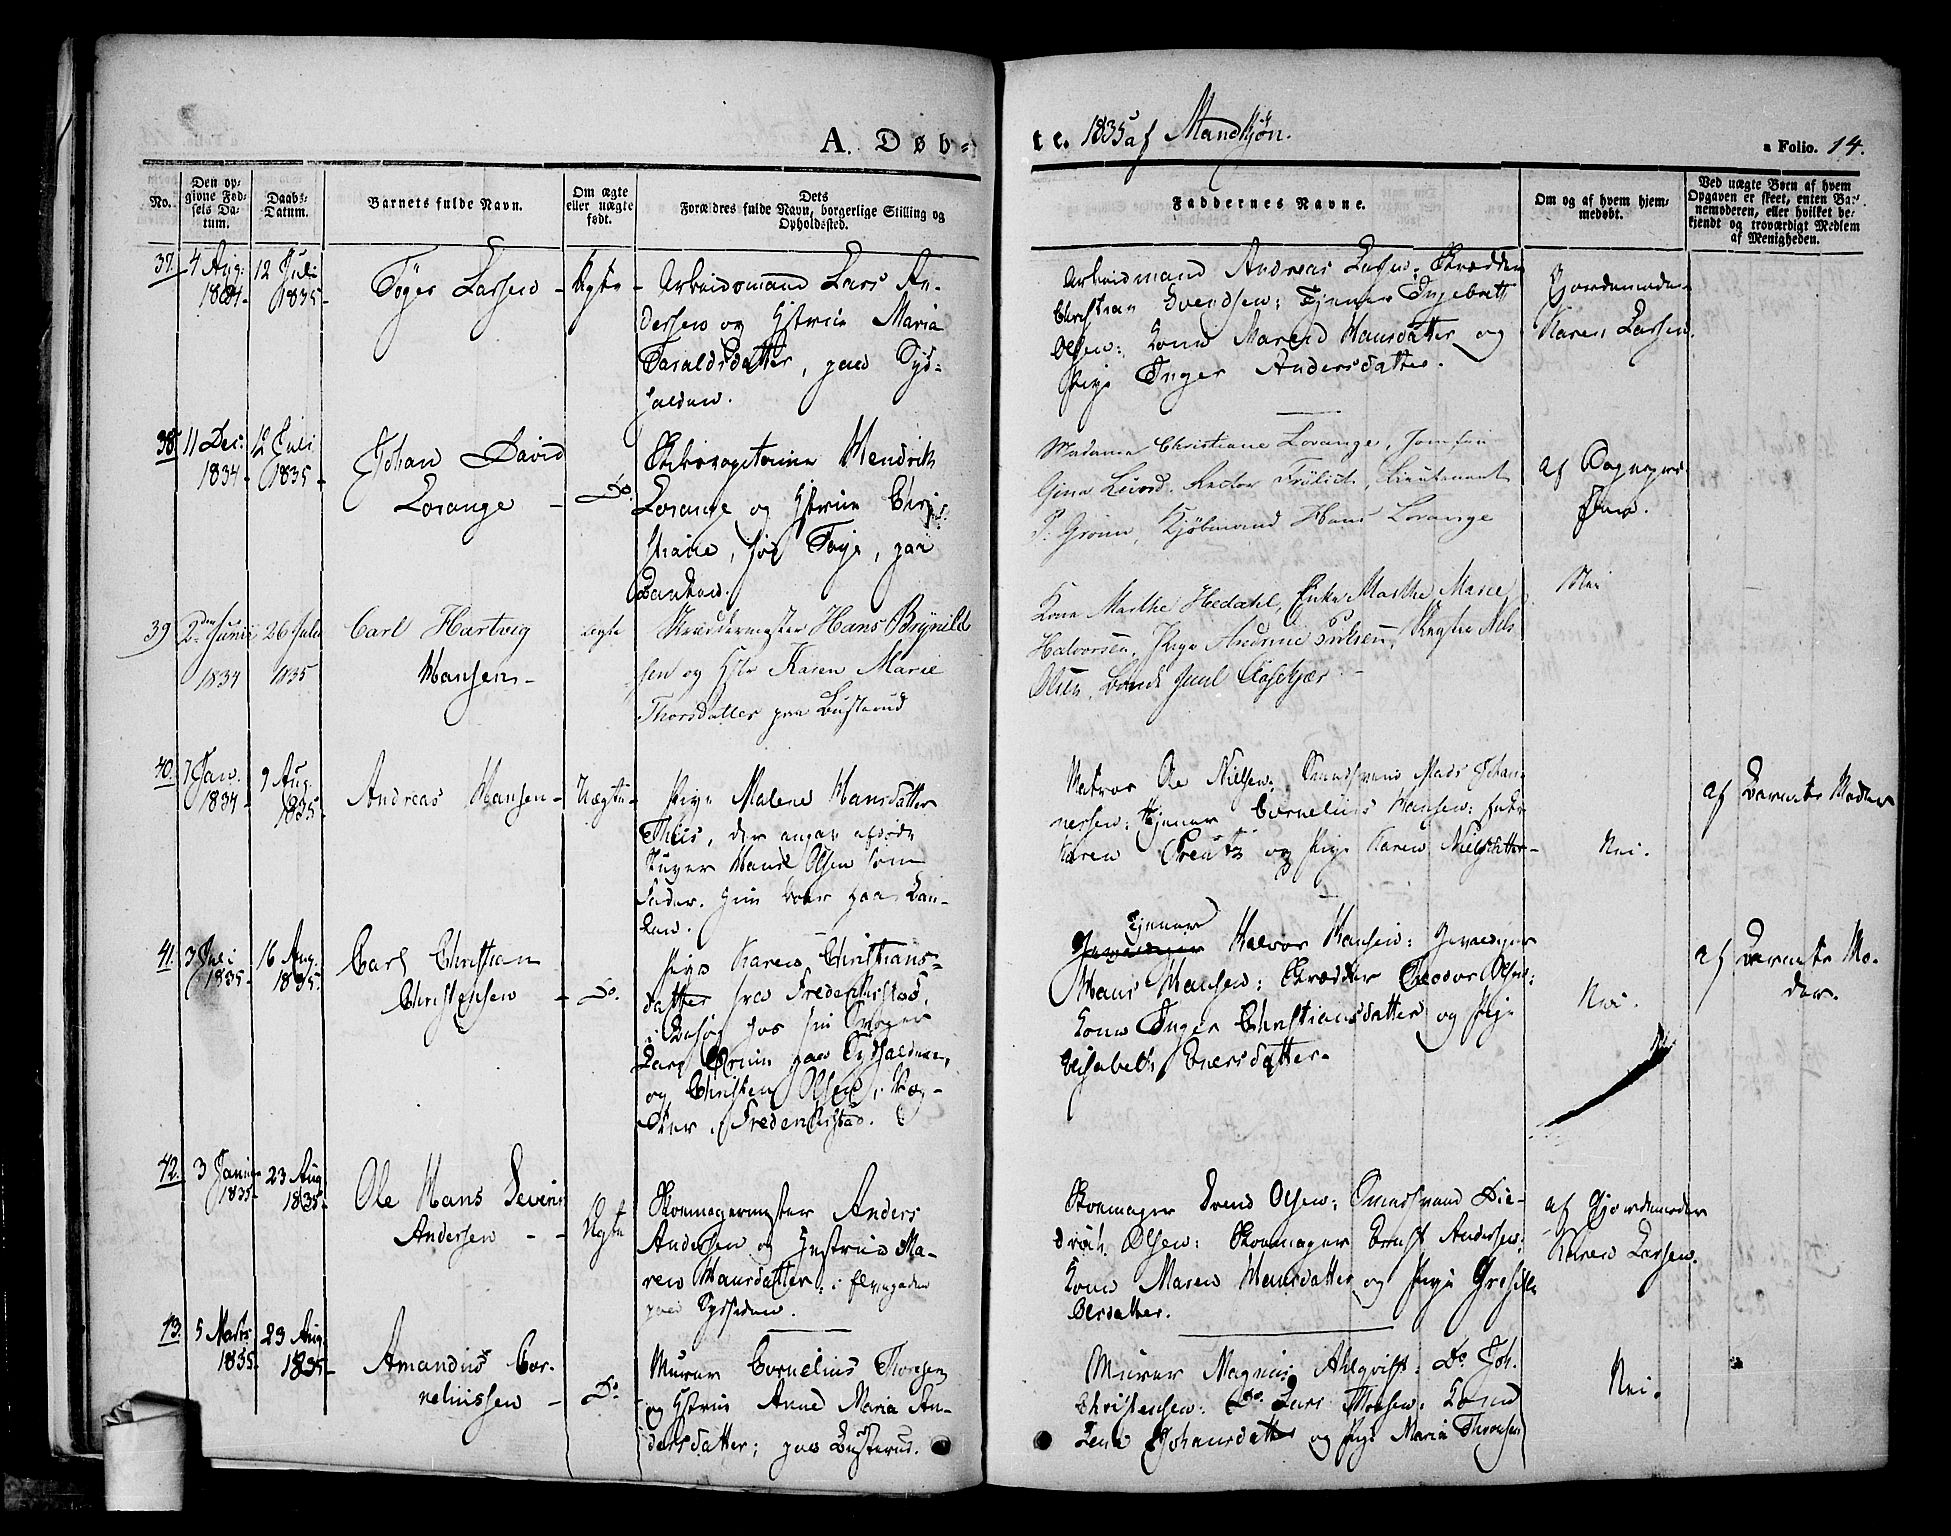 A. Døb=
te. 1835 af Mandkjøn.
a Folio. 14.
No.
Den op=
givne Fød=
sels Da=
tum.
Daabs=
Datum.
Barnets fulde Navn.
Om ægte
eller uægte
født.
Dets
Forældres fulde Navn, borgerlige Stilling og
Opholdssted.
Faddernes Navne.
Om og af hvem hjem=
medøbt.
Ved uægte Børn af hvem
Opgaven er skeet, enten Bar=
nemoderen, eller hvilket be=
kjendt og troværdigt Medlem
af Menigheden.
37. 4 Aug:
1834.
12 Juli
1835.
Töger Larsen
Ægte
Arbeidsmand Lars An=
dersen og Hstrue Maria
Taraldsdatter, paa Syd=
halden.
Arbeidmand Andreas Larsen: Skrædder
Christian Svendsen: Tjener Ingebrett
Olsen: Kone Maren Hansdatter og
Pige Inger Andersdatter.
Gjordemoder
Karen Larsen.
38. 11 Dec:
1834
12 Juli
1835.
Johan David
Lorange
Do.
Skibscapitaine Hendrik
Lorange og Hstrue Chri=
stiane, föd Faye, paa
Banken.
Madame Christiane Lorange, Jomfru
Gina Lund, Rector Frölich, Lieutenant
P: Gröner, Kjöbmand Hans Lorange
af Sognepr.
39 2den Junii
1834
26 Juli
1835
Carl Hartvig
Hansen
ægte
Skreddermester Hans Brynild
sen og Hstr Karen Marie
Thorsdatter paa Busterud
Kone Marthe Hedahl, Enke Marthe Marie
Halvorsen, Pige Andrine Eriksen, Nels
Olsen, Bonde Juul Aasekjær
Nei
40. 7 Jan.
1834
9 Aug.
1835.
Andreas Hansen
Uægte
Pige Malene Hansdatter
Thiis, der angav afdøde
Hans Olsen som
Fader. Hun boer paa Ban=
ken.
Matros Ole Nielsen: Mads Johan=
nessen: Tjener Cornelius Hansen: Enke
Karen Preutz og Pige Karen Nielsdatter
Nei.
af Barnets Moder
41. 3 Juli
1835.
16 Aug.
1835.
Carl Christian
Christensen
Do.
Pige Karen Christians=
datter fra Frederikstad,
i Besög hos sin Svoger
Lars Bruun paa Sydhalden,
og Christen Olsen, i Væg=
ter, i Frederikstad.
Tjener
Halvor Hansen:
Hans Hansen: Skrædder Theodor Olsen:
Kone Inger Christiansdatter og Pige
Elisabeth Enersdatter.
Nei.
af Barnets Mo=
der.
42. 3 Januar
1835.
23 Aug
1835.
Ole Hans Severin
Andersen
Ægte
Skomagermester Anders
Andersen og Hustrue Ma=
ren Hansdatter: i Elvegaden
paa Sydsiden.
Skomager Svend Olsen: Die=
drich Olsen: Skomager Ernst Andersen:
Kone Maren Hansdatter og Pige
Olesdatter.
af Gjordemoder
Karen Larsen.
43. 5 Marts
1835.
23 Aug.
1835.
Amandus Cor=
neliussen
Do.
Murer Cornelius Thoresen
og Hstrue Anne Maria An=
dersdatter; paa Busterud.
Murer Magnus Ahlqvist: Do. Joh.
Christensen: Do. Lars Thoresen: Kone
Lena Johansdatter og Pige Maria Thoresen
Nei.